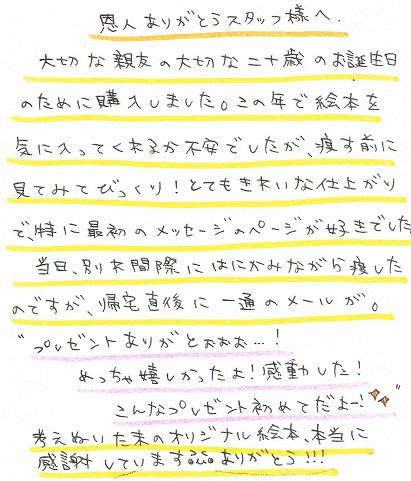 恩人ありがとうスタッフ様へ.
大切な親友の大切な二十歳のお誕生日
のために購入しました。この年で絵本を
気に入ってくれるか不安でしたが、渡す前に
見てみてびっくり！とてもきれいな仕上がり
で、特に最初のメッセージのページが好きでした
当日、別れ間際にはにかみながら渡した
のですが、帰宅直後に一通のメールが。
"プレゼントありがとおおお…！
めっちゃ嬉しかったよ！感動した！
こんなプレゼント初めてだよー！"
考えぬいた末のオリジナル絵本、本当に
感謝しています ありがとう!!!